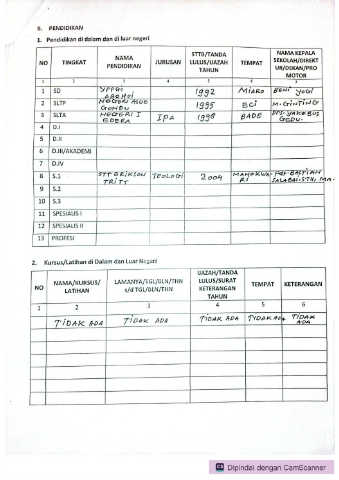 II. PENDIDIKAN
1. Pendidikan di dalam dan di luar negeri
NO TINGKAT NAMA PENDIDIKAN JURUSAN STTB/TANDA LULUS/IJAZAH TAHUN TEMPAT NAMA KEPALA SEKOLAH/DIREKTUR/DEKAN/PROMOTOR
1 2 3 4 5 6
1 SD YPPGI 1992 MIARO BENI YOGI
2 SLTP NEGERI 1995 BCI M. GINTING
3 SLTA NEGERI I EDERA IPA 1998 BADE DRS. YAKOBUS
4 D.I
5 D.II
6 D.III/AKADEMI
7 D.IV
8 S.1 STT ERIKSON TRITT TEOLOGI 2004 MANOKWARI
9 S.2
10 S.3
11 SPESIALIS I
12 SPESIALIS II
13 PROFESI
2. Kursus/Latihan di Dalam dan Luar Negeri
NO NAMA/KURSUS/LATIHAN LAMANYA/TGL/BLN/THN s/d TGL/BLN/THN IJAZAH/TANDA LULUS/SURAT KETERANGAN TAHUN TEMPAT KETERANGAN
1 2 3 4 5 6
TIDAK ADA TIDAK ADA TIDAK ADA TIDAK ADA TIDAK ADA
Dipindai dengan CamScanner